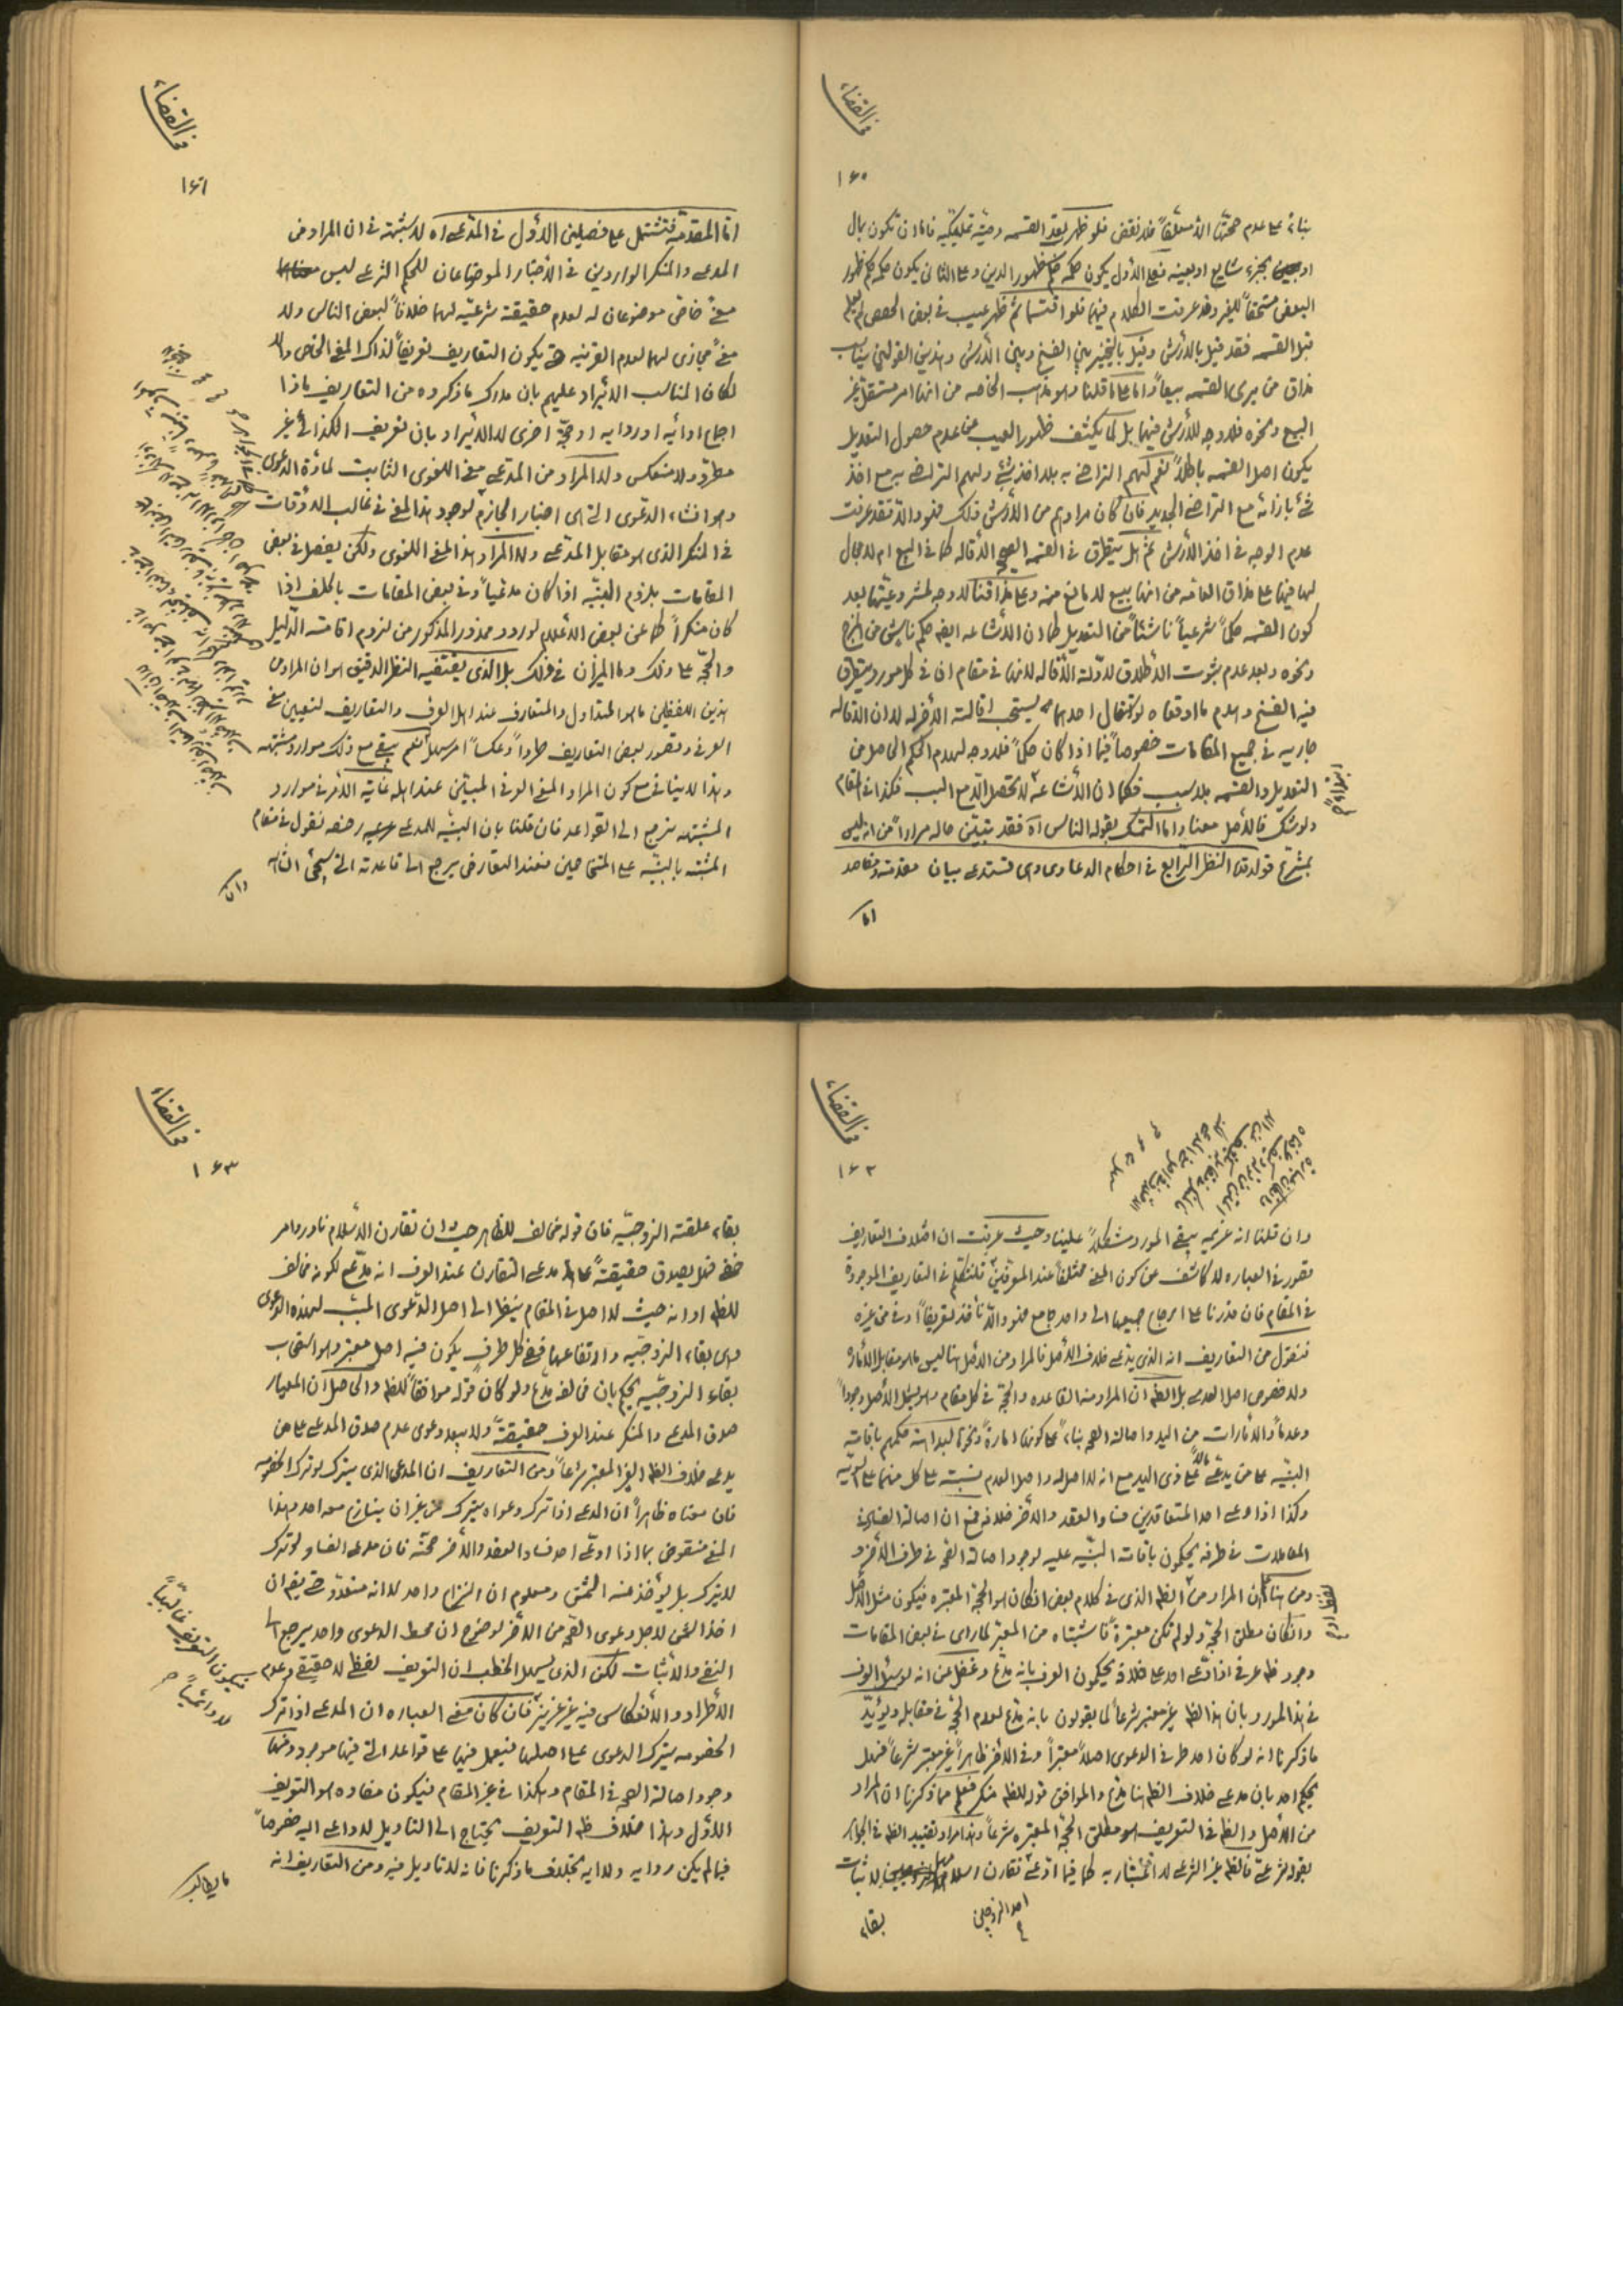 في القضاء
١٦٠
بناءً على عدم صحتها الا معلقاً فلا نقض فلو ظهر بعد القسمه وصية تمليكيه فاما ان تكون بمال
او بجزء شايع او بعينه فعلى الاول يكون حكمه حكم ظهور الدين وعلى الثاني يكون حكمه حكم ظهور
البعض مستحقاً للغير وقد عرفت الكلام فيهما فلو اقتسما ثم ظهر عيب في بعض الحصص لم يعلم
قبل القسمه فقد قيل بالارش وقيل بالتخيير بين الفسخ وبين الارش وهذين القولين يناسب
مذاق من يرى القسمه بيعاً واما على ما قلنا وهو مذهب الخاصه من انها امر مستقل غير
البيع ونحوه فلا وجه للارش فيها بل لما يكشف ظهور العيب عن عدم حصول التعديل
يكون اصل القسمه باطلاً نعم لهم التراضى به بلا اخذ شئ ولهم التراضى به مع اخذ
شئ بازائه مع التراضى الجديد فان كان مرادهم من الارش ذلك فهو والا فقد عرفت
عدم الوجه في اخذ الارش ثم هل يتطرق في القسمه الصحيحه الاقاله كما في البيع ام لا مجال
لها فيها على مذاق العامه من انها بيع لا مانع منه وعلى مذاقنا لا وجه لمشروعيتها بعد
كون القسمه حكماً شرعياً ناشئاً من التعديل كما ان الاشاعه ايضا حكم ناش من المزج
ونحوه وبعد عدم ثبوت الاطلاق لادلة الاقاله لانها في مقام ان في كل مورد يتطرق
فيه الفسخ وهدم ما اوقعاه لو استقال احدهما يستحب اقالته الاخر له لا ان الاقاله
جاريه في جميع المقامات خصوصاً فيما اذا كان حكماً فلا وجه لهدم الحكم الحاصل من
التعديل والقسمه بلا سبب فكما ان الاشاعه لا تحصل الا مع السبب فكذا في المقام
ولو شك فالاصل معنا واما التمسك بقوله الناس آه فقد تبيّن حاله مراراً من انه ليس
بمشرع قوله قده النظر الرابع في احكام الدعاوى وهى تستدعى بيان مقدمة ومقاصد
اما
في القضاء
١٦١
اما المقدمة فتشتمل على فصلين الاول في المدعى آه لا شبهة في ان المراد من
المدعى والمنكر الواردين في الاخبار الموضوعان للحكم الشرعى ليس
معنى خاص موضوعان له لعدم حقيقته شرعيّه لهما خلافاً لبعض الناس ولا
معنى مجازى لهما لعدم القرينه حتى يكون التعاريف تعريفاً لذاك المعنى الخاص والا
لكان المناسب الايراد عليهم بان مدرك ما ذكروه من التعاريف ماذا
اجماع او آيه او روايه او حجّة اخرى لا الايراد بان تعريف الكذائى غير
مطرد ولا منعكس ولا المراد من المدعى معنى اللغوى الثابت لمادة الدعوى
وهو انشاء الدعوى التى هى اخبار الجازم لوجود هذا المعنى في غالب الاوقات
في المنكر الذى هو مقابل المدعى ولا المراد هذا المعنى اللغوى ولكن يفصل في بعض
المقامات بلزوم البيّنه اذا كان مدعياً وفي بعض المقامات بالحلف اذا
كان منكراً كما عن بعض الاعلام لورود محذور المذكور من لزوم اقامة الدليل
والحجّة على ذلك وما الميزان في ذلك بل الذى يقتضيه النظر الدقيق هو ان المراد من
هذين اللفظين ما هو المتداول والمتعارف عند اهل العرف والتعاريف لتعيين معنى
العرفى وقصور بعض التعاريف طرداً وعكساً امر سهل نعم يبقى مع ذلك موارد مشتبهه
وهذا لا ينافى مع كون المراد المعنى العرفى المبيّن عند اهله غاية الامر في موارد
المشتبهه نرجع الى القواعد فان قلنا بان البينّه للمدعى رخصه نقول في مقام
المشتبه بالبينّه على المتخاصمين فعند التعارض يرجع الى قاعدته التى سيجئ انشاء
وان
في القضاء
١٦٢
وان قلنا انه عزيمه يبقى المورد مشكلاً علينا وحيث عرفت ان اختلاف التعاريف
قصور في العباره لا كاشف عن كون المعنى مختلفاً عند المعرّفين فلنتكلم في التعاريف الموجودة
في المقام فان قدرنا على ارجاع جميعها الى واحد جامع فهو والا نأخذ تعريفاً اوفى من غيره
فنقول من التعاريف انه الذى يدعى خلاف الاصل فالمراد من الاصل هنا ليس ما هو مقابل الاماره
ولا خصوص اصل العدم بل الظاهر ان المراد منه القاعده والحجّة في كل مقام وهو يشمل الاصل وجوداً
وعدماً والامارات من اليد واصالة الصحه بناءً على كونها امارةً ونحوها لبداهة حكمهم باقامة
البينّه على من يدعى مالاً على ذى اليد مع انه لا اصل له واصل العدم نسبته على كل منهما على السويّه
وكذا اذا ادعى احد المتعاقدين فساد العقد والاخر خلافه فمع ان اصالة الفساد في
المعاملات في طرفه يحكمون باقامة البيّنه عليه لوجود اصالة الصحه في طرف الآخر و
ومن هنا ظهر ان المراد من الظاهر الذى في كلام بعض ان كان هو الحجة المعتبره فيكون مثل الاصل
وان كان مطلق الحجّة ولو لم تكن معتبرةً فاشتباه من المعتبر لما راى في بعض المقامات
وجود ظاهر عرفى اذا ادّعى احد على خلافه يحكمون العرف بانه مدّع وغفل عن انه لو سئل العرف
في هذا المورد وبان هذا الظاهر غير معتبر شرعاً لما يقولون بانه مدّع لعدم الحجّة في مقابله ويؤيّد
ما ذكرنا انه لو كان احد طرفى الدعوى اصلاً معتبراً وفى الاخر ظاهراً غير معتبر شرعاً فهل
يحكم احد بان مدعى خلاف الظاهر هنا مدّع والموافق قوله للظاهر منكر فعلم مما ذكرنا ان المراد
من الاصل والظاهر في التعريف هو مطلق الحجّة المعتبره شرعاً وهذا مراد تقييد الظاهر في الجواهر
بقوله شرعى فالظاهر غير الشرعى لا اعتبار به كما فيما ادعى تقارن اسلام لاثبات
احد الزوجين
بقاء
في القضاء
١٦٣
بقاء علقته الزوجيّه فان قوله مخالف للظاهر حيث ان تقارن الاسلام نادر وامر
خفى فهل يصدق حقيقتهً على مدعى التقارن عند العرف انه مدّعٍ لكونه مخالف
للظاهر او انه حيث لا اصل في المقام ينظر الى اصل الدعوى المسبب لهذه الدعوى
وهى بقاء الزوجيّه وارتفاعها ففى كل طرفٍ يكون فيه اصل معتبر وهو استصحاب
بقاء الزوجيّه يحكم بان مخالفه مدّع ولو كان قوله موافقاً للظاهر والحاصل ان المعيار
صدق المدعى والمنكر عند العرف حقيقتهً ولا يبعد دعوى عدم صدق المدعى على من
يدعى خلاف الظاهر الغير المعتبر شرعاً ومن التعاريف ان المدعى الذى يترك لو ترك الخصومه
فان معناه ظاهراً ان المدعى اذا ترك دعواه يترك من غير ان ينازع معه احد وهذا
المعنى منقوض بما اذا ادعى احد فساد العقد والآخر صحته فان مدعى الفساد لو ترك
لا يترك بل يؤخذ منه الثمن ومعلوم ان النزاع واحد لا انه متعدّد حتى يقال ان
اخذ الثمن لاجل دعوى الصحه من الاخر لوضوح ان محط الدعوى واحد يرجع الى
النفى والاثبات لكن الذى يسهل الخطب ان التعريف لفظى لا حقيقى وعدم
الاطراد والانعكاس فيه غير عزيز فان كان معنى العباره ان المدعى اذا ترك
الخصومه يترك الدعوى على اصلها فيعمل فيها على قواعد التى فيها موجود ومنها
وجود اصالة الصحه في المقام وهكذا في غير المقام فيكون مفاده هو التعريف
الاول وهذا خلاف ظاهر التعريف يحتاج الى التاويل لا داعى اليه خصوصاً
فيما لم يكن روايه ولا آيه بخلاف ما ذكرنا فانه لا تاويل فيه ومن التعاريف انه
فيكون التعريف غالبيّاً
لا دائميّاً
ما يطالب